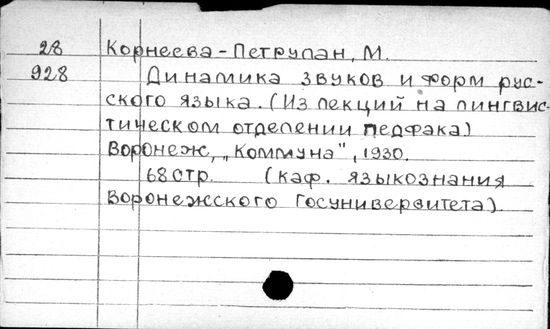 28 Корнеева-Петрулан, М.
928 Динамика звуков и форм рус-
ского языка. (Из лекций на лингвис-
тическом отделении педфака)
Воронеж, „Коммуна", 1930.
68 стр. (каф. языкознания
Воронежского Госуниверситета)